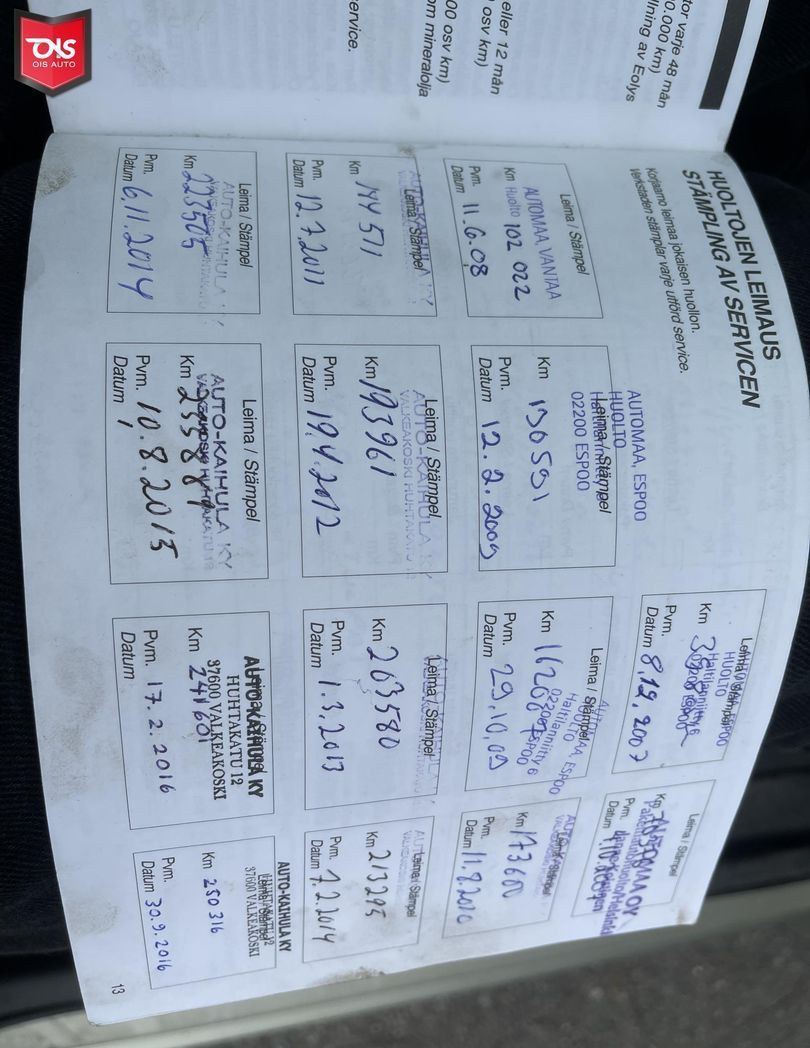 OIS
OIS AUTO
tor varje 48 mån
0.000 km)
llning av Eolys
eller 12 mån
osv km)
00 osv km)
om mineralolja
ervice.
HUOLTOJEN LEIMAUS
STÄMPLING AV SERVICEN
Korjaamo leimaa jokaisen huollon.
Verkstaden stämplar varje utförd service.
Leima / Stämpel
HUOLTO
Haltijanniitty 6
Km
Pvm.
Datum 8.12.2007
Leima / Stämpel
Km
Pvm.
Datum
Leima / Stämpel
AUTOMAA VANTAA
Km Huolto 102 022
Pvm.
Datum 11.6.08
AUTOMAA, ESPOO
HUOLTO
Leima / Stämpel
02200 ESPOO
Km 130591
Pvm.
Datum 12.2.2009
Leima / Stämpel
AUTOMAA, ESPOO
HUOLTO
Haltijanniitty 6
02200 ESPOO
Km
Pvm.
Datum 29.10.09
Leima / Stämpel
Km 173600
Pvm.
Datum 11.8.2010
AUTO-KAIHULA KY
Leima / Stämpel
Km 144511
Pvm.
Datum 12.7.2011
Leima / Stämpel
AUTO-KAIHULA KY
VALKEAKOSKI HUHTAKATU 12
Km 193961
Pvm.
Datum 19.4.2012
Leima / Stämpel
AUTO-KAIHULA KY
Km 203580
Pvm.
Datum 1.3.2013
Leima / Stämpel
Km 213295
Pvm.
Datum 7.2.2014
Leima / Stämpel
AUTO-KAIHULA KY
Km 223505
Pvm.
Datum 6.11.2014
Leima / Stämpel
AUTO-KAIHULA KY
VALKEAKOSKI HUHTAKATU 12
Km
Pvm. 10.8.2015
Datum
Leima / Stämpel
AUTO-KAIHULA KY
HUHTAKATU 12
37600 VALKEAKOSKI
Km 241601
Pvm. 17.2.2016
Datum
AUTO-KAIHULA KY
HUHTAKATU 12
Leima / Stämpel
37600 VALKEAKOSKI
Km 250316
Pvm.
Datum 30.9.2016
13